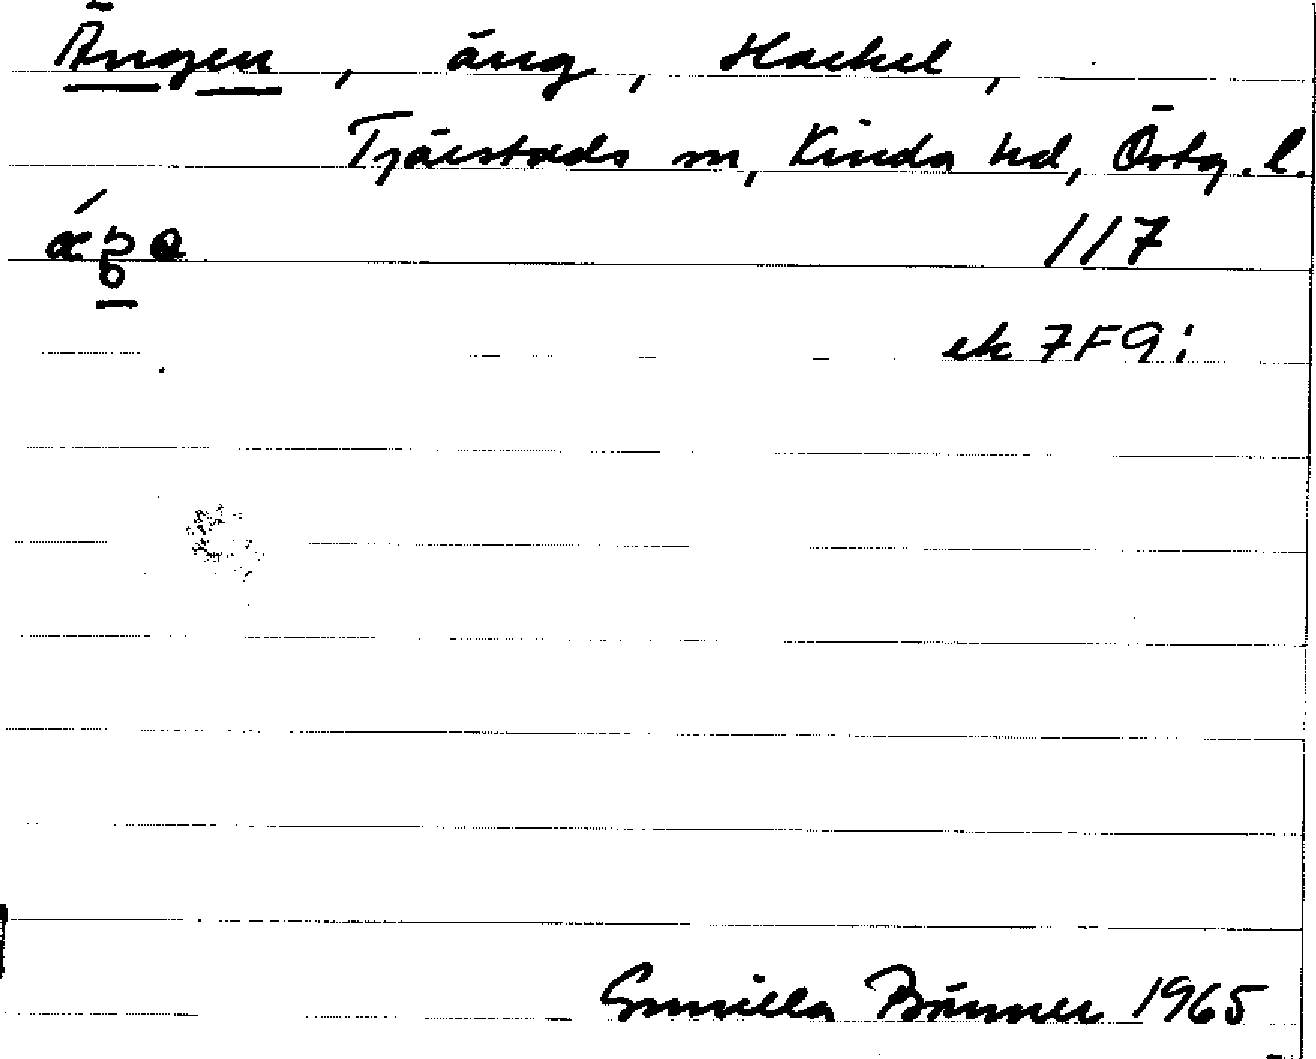 Ängen, äng, Hackel,
Tjärstads sn, Kinda hd, Östg. l.
117
ek 7F9i
Gunilla 1965